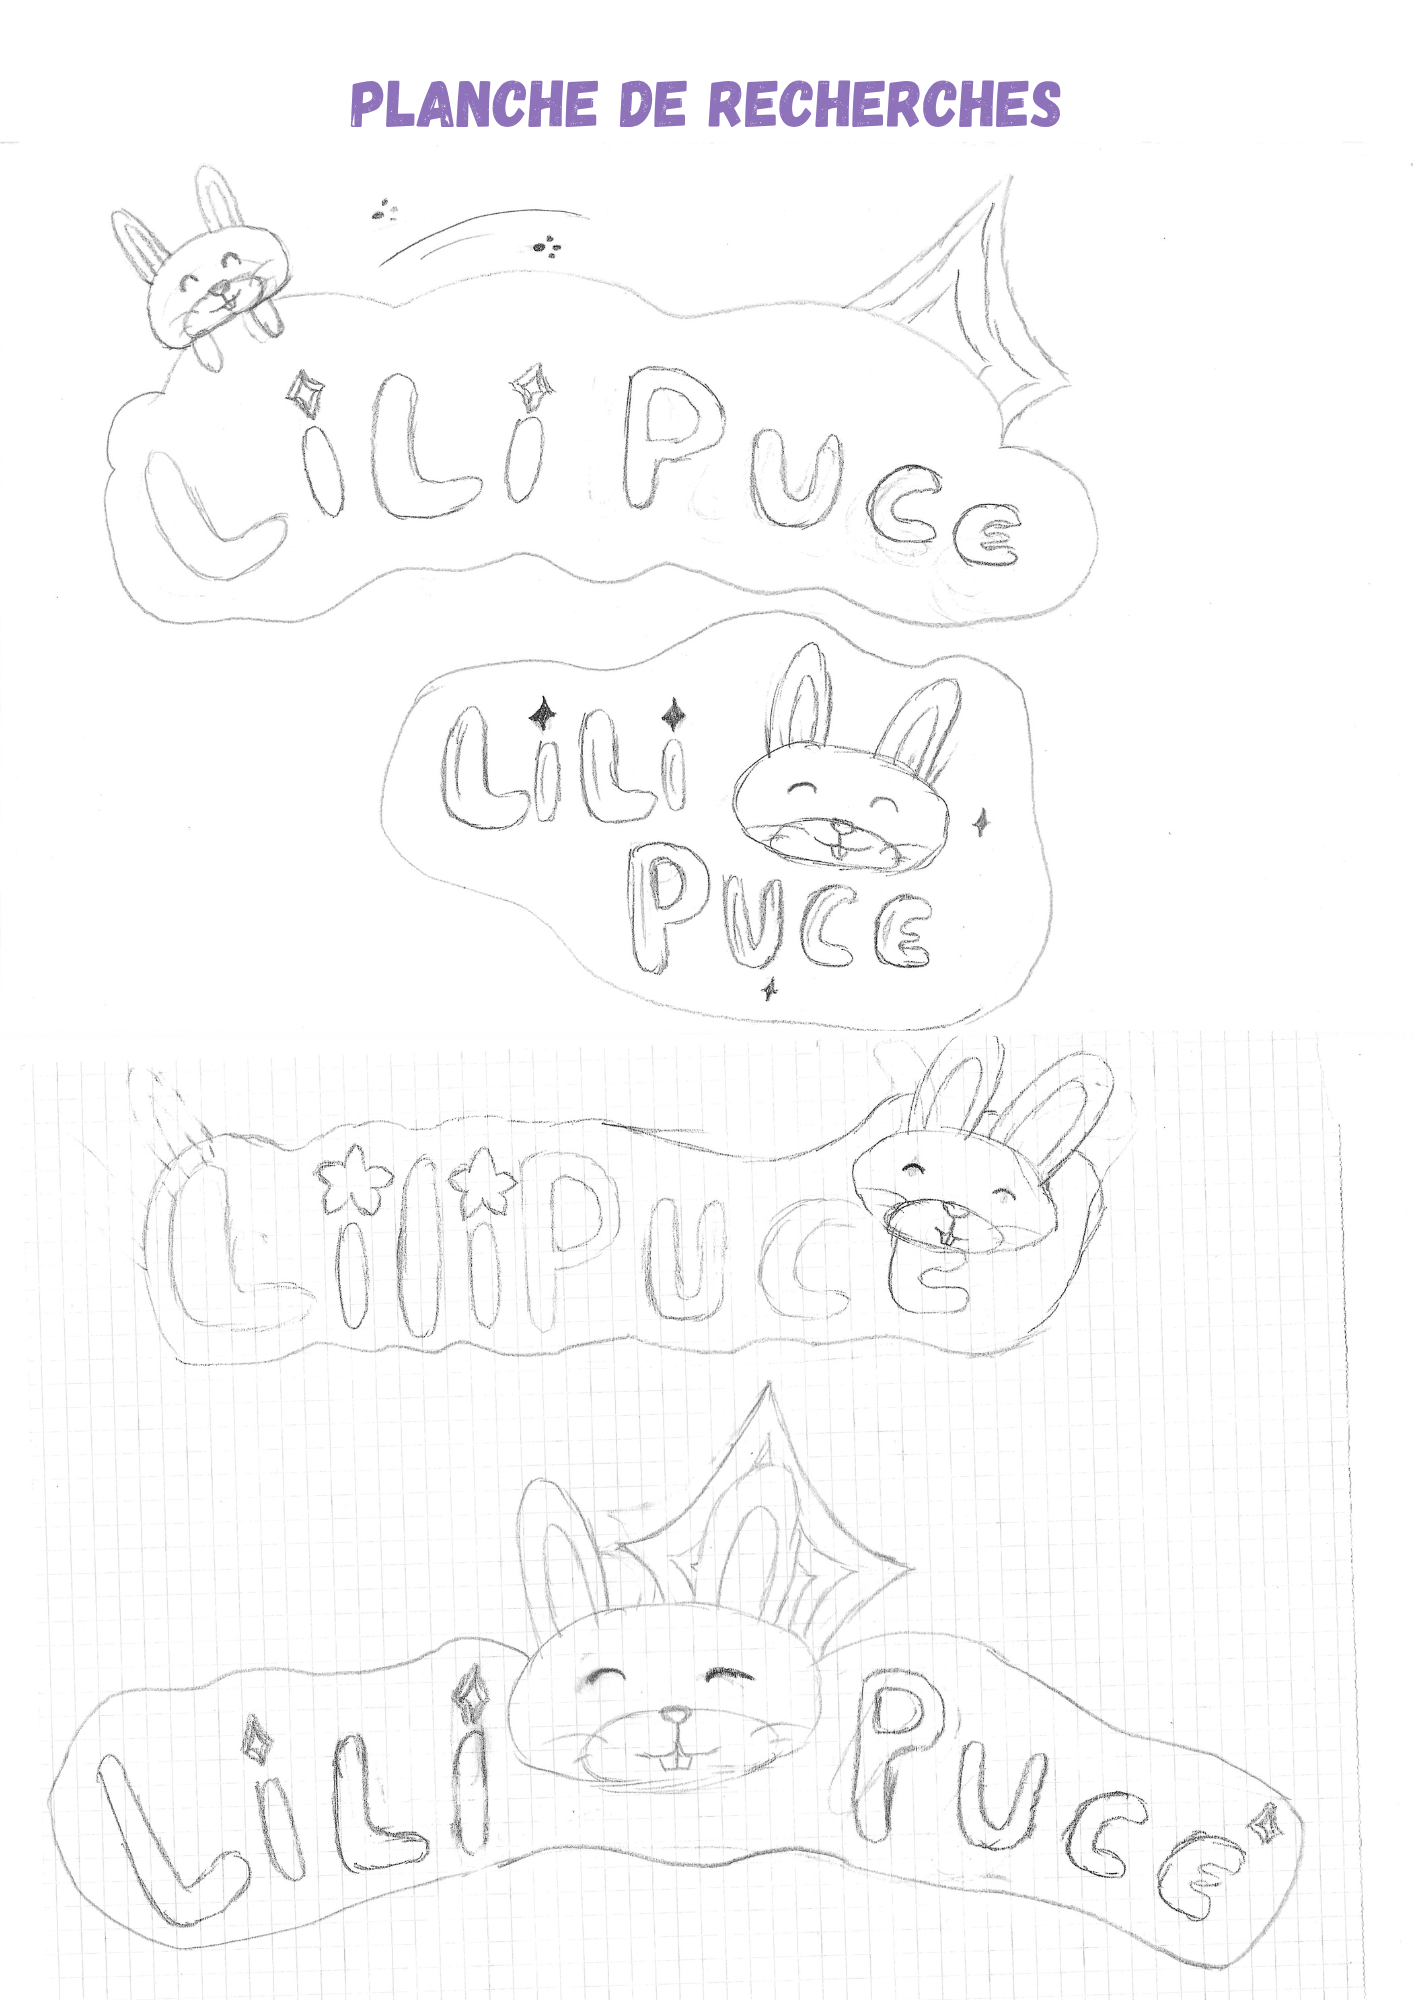 PLANCHE DE RECHERCHES
LiLi PUCE
LiLi
PUCE
LiliPuce
LiLi PUCE